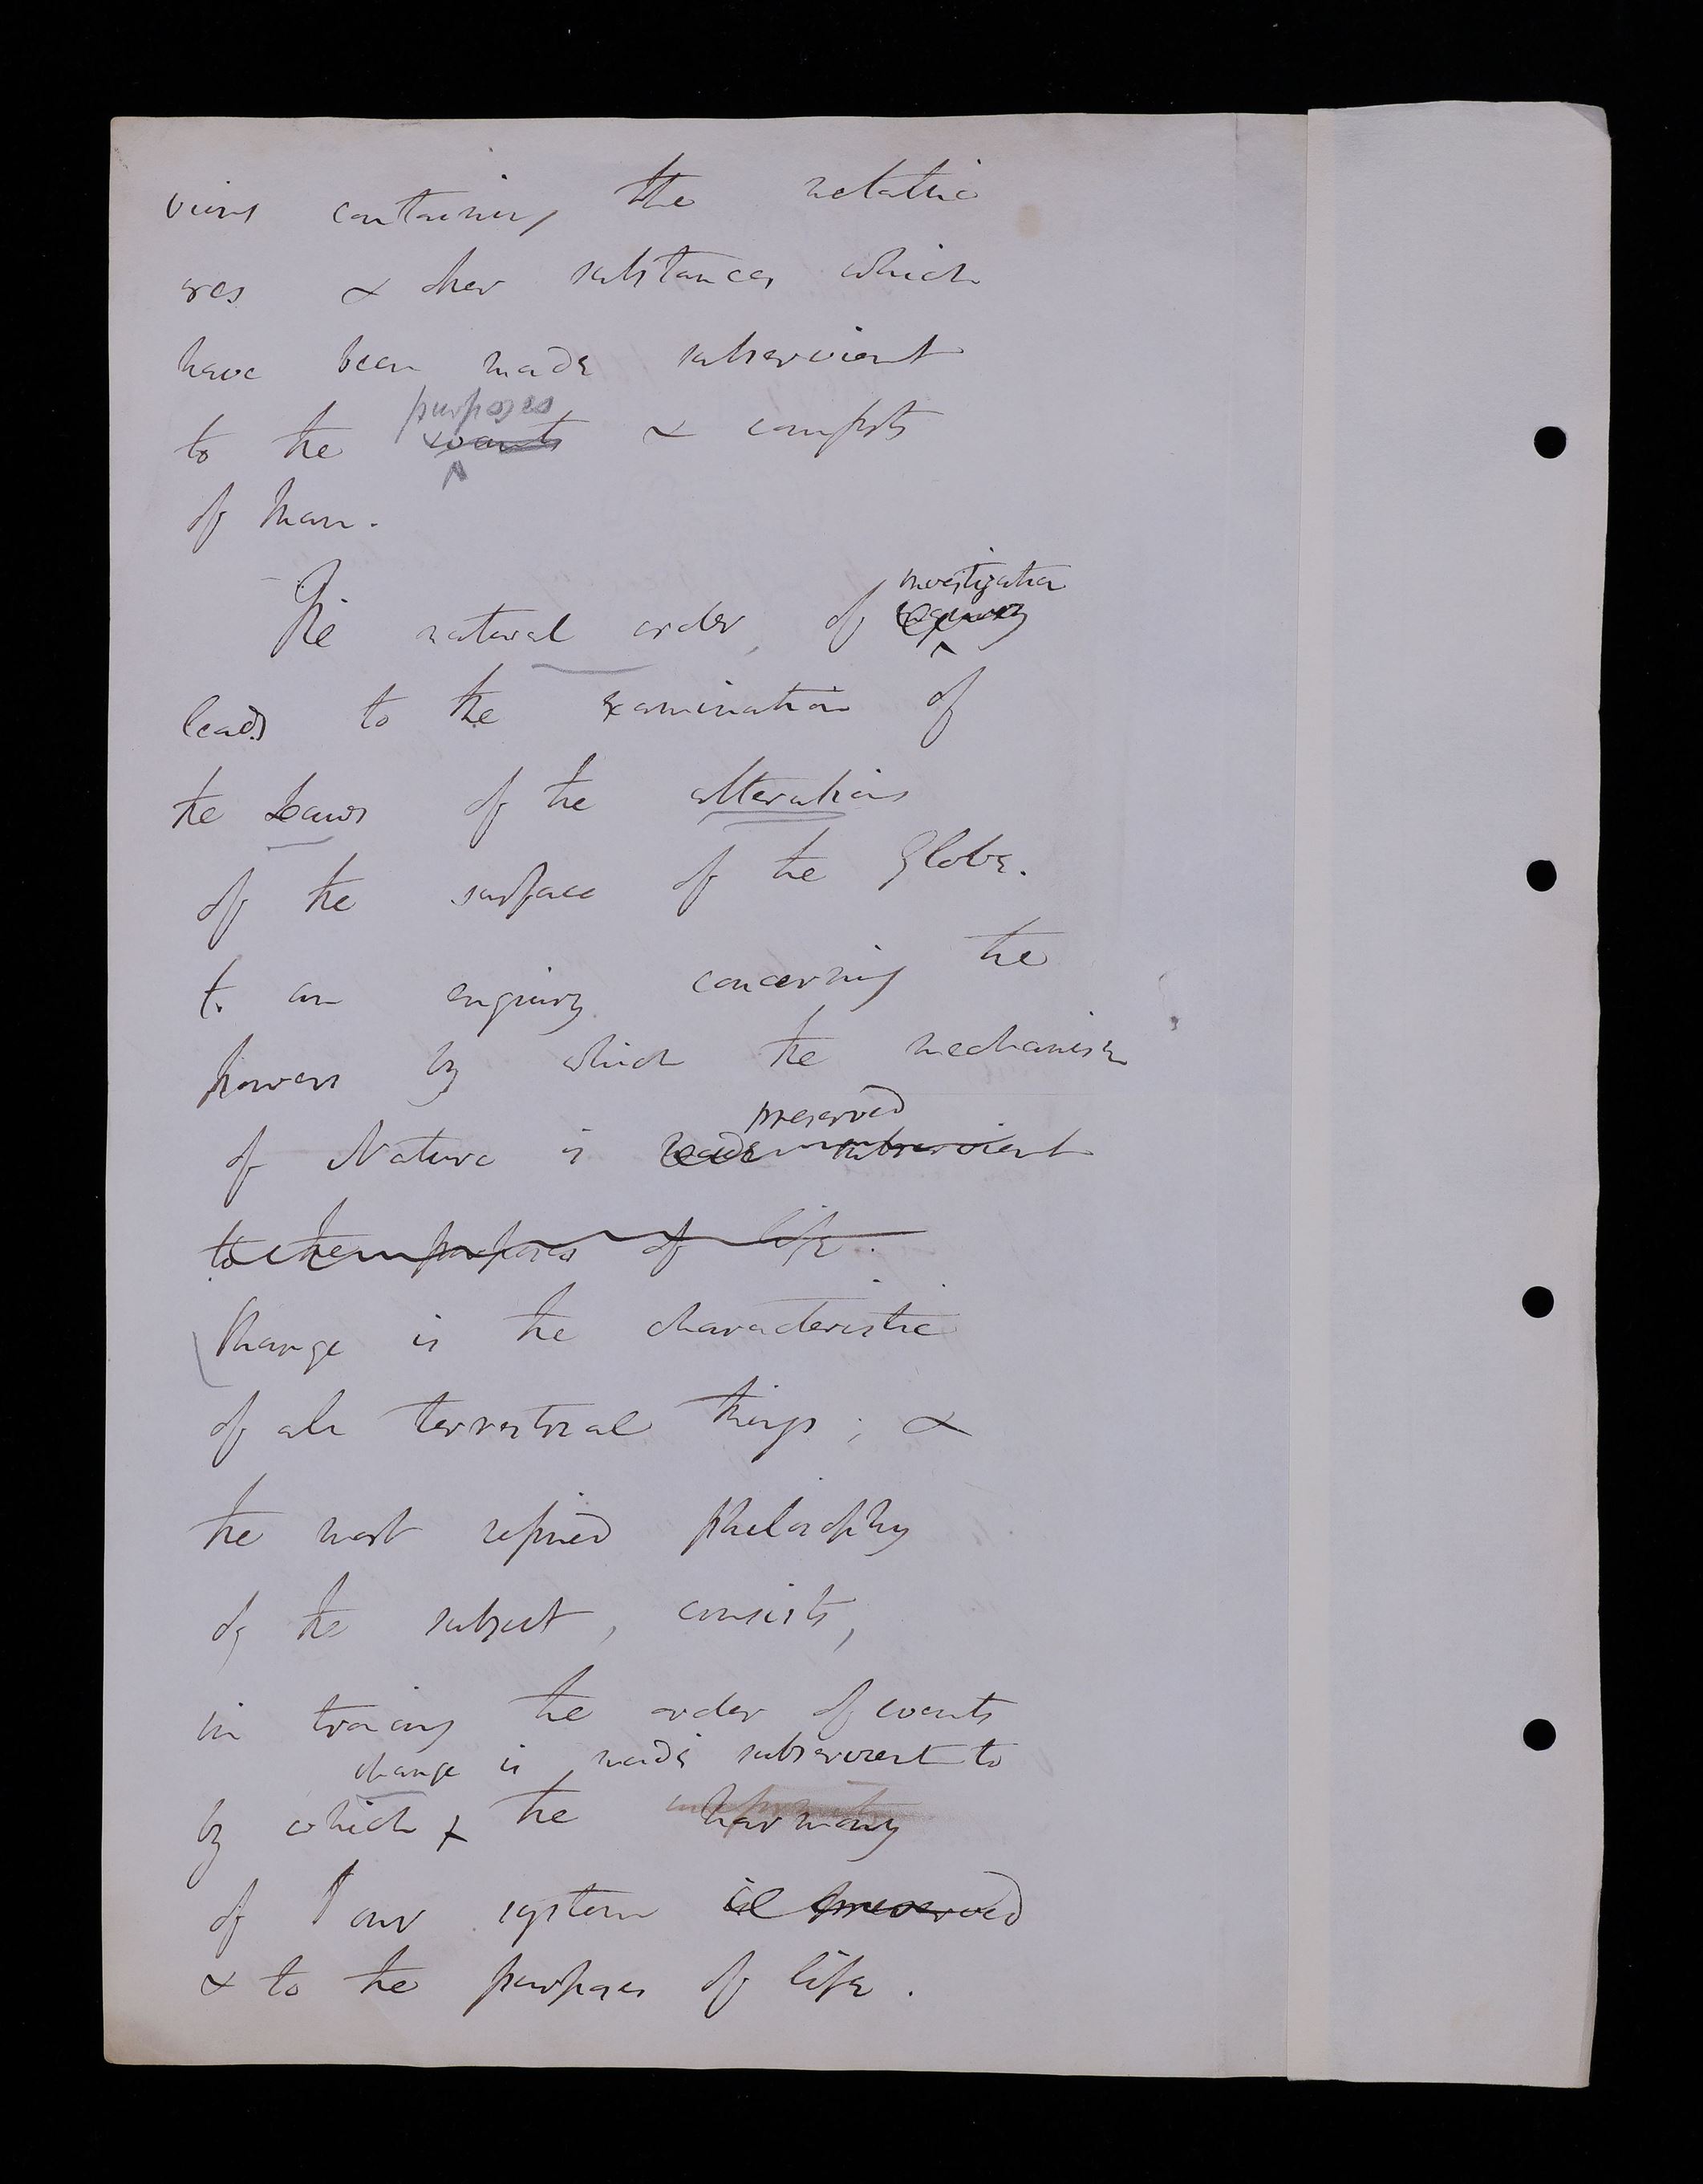 veins containing the metallic
ores & other substances which
have been made subservient
purposes
to the wants & comforts
of Man.
investigation
The natural order, of enquiry
leads to the examination of
the Laws of the alterations
of the surface of the Globe.
to an enquiry concerning the
powers by which the mechanism
preserved
of Nature is made subservient
to the purposes of life.
Change is the characteristic
of all terrestrial things; &
the most refined philosophy
of the subject, consists,
in tracing the order of events
change is made subservient to
by which × the harmony
of our system is preserved
& to the purposes of life.